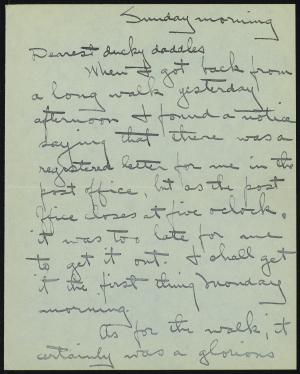 Sunday morning
Dearest ducky daddles
When I got back from
a long walk yesterday
afternoon I found a notice
saying that there was a
registered letter for me in the
post office, but as the post
office closes at five o'clock,
it was too late for me
to get it out. I shall get
it the first thing Monday
morning.
As for the walk; it
certainly was a glorious